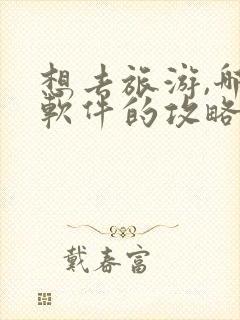 想去旅游,哪
软件的攻略
戴春富